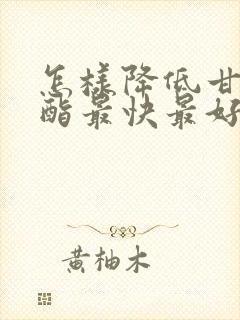 怎樣降低甘
酯最快最好
黄柚木